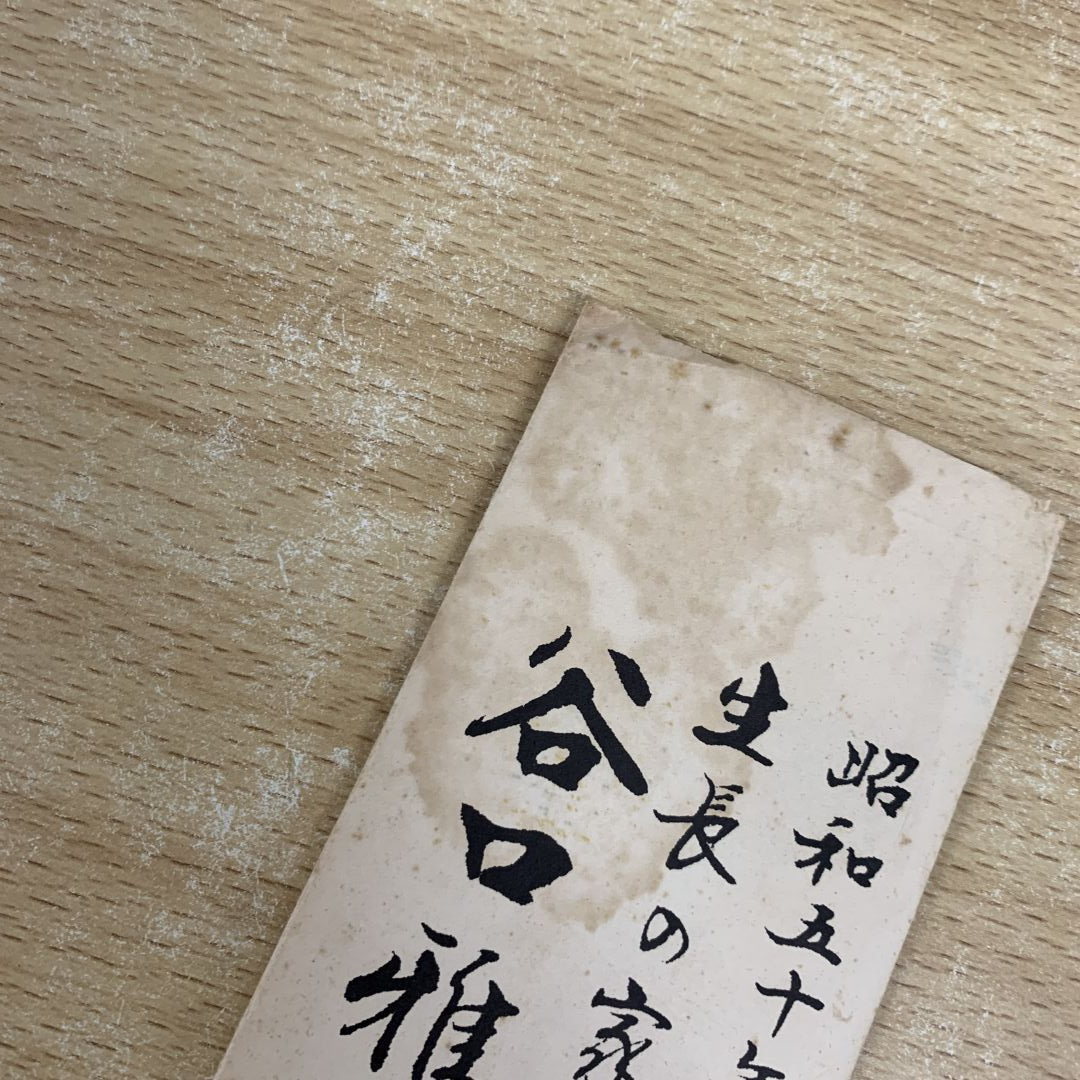 昭和五十年
生長の家
谷口雅